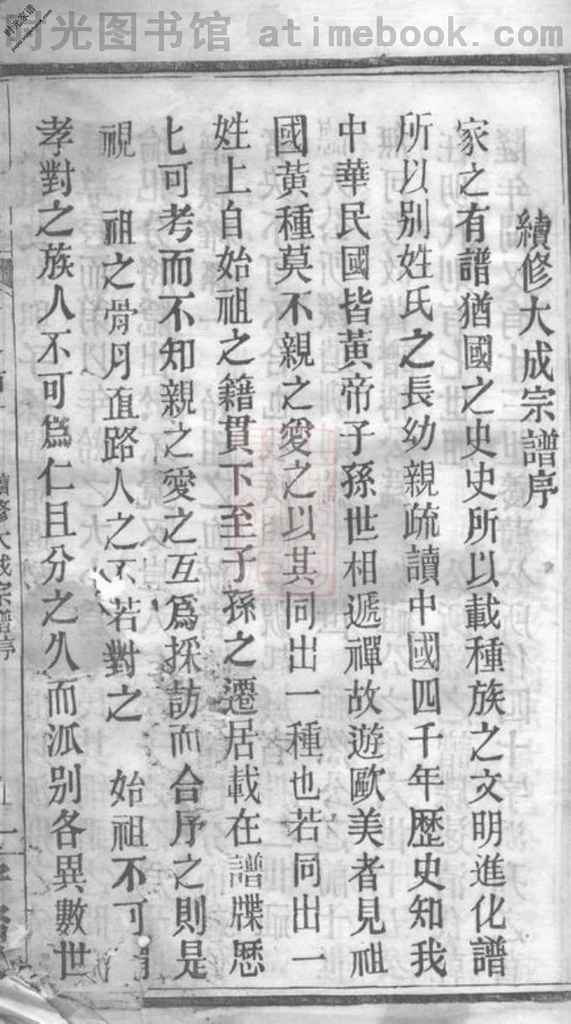 时光图书馆 atimebook.com
續修大成宗譜序
家之有譜猶國之史史所以載種族之文明進化譜
所以别姓氏之長幼親疏讀中國四千年歷史知我
中華民國皆黄帝子孫世相遞禪故遊歐美者見祖
國黄種莫不親之愛之以其同出一種也若同出一
姓上自始祖之籍貫下至子孫之遷居載在譜牒歷
匕可考而不知親之愛之互爲採訪而合序之則是
視 祖之骨月直路人之不若對之 始祖不可
孝對之族人不可爲仁且分之久而派别各異數世
續修大成宗譜序